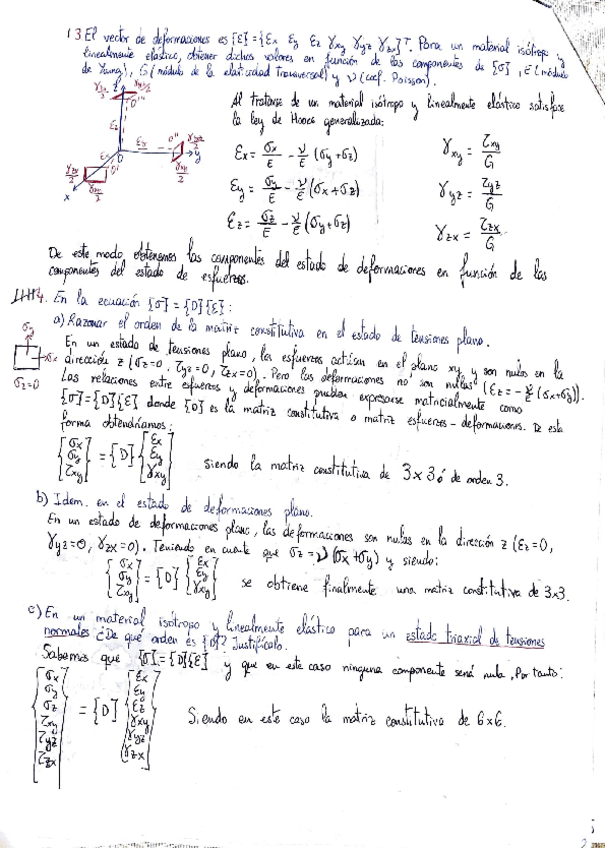 13 El vector de deformaciones es {ε} = {εx εy εz γxy γyz γzx}ᵀ. Para un material isótropo y
linealmente elástico, obtener dichos valores en función de las componentes de {σ}, E (módulo
de Young), G (módulo de la elasticidad transversal) y ν (coef. Poisson).
Al tratarse de un material isótropo y linealmente elástico satisface
la ley de Hooke generalizada:
εx = σx/E - ν/E (σy+σz)
γxy = τxy/G
εy = σy/E - ν/E (σx+σz)
γyz = τyz/G
εz = σz/E - ν/E (σy+σx)
γzx = τzx/G
De este modo obtenemos las componentes del estado de deformaciones en función de las
componentes del estado de esfuerzos.
4. En la ecuación {σ} = [D]{ε}:
a) Razonar el orden de la matriz constitutiva en el estado de tensiones plano.
En un estado de tensiones plano, los esfuerzos actúan en el plano xy y son nulos en la
dirección z (σz=0, τyz=0, τzx=0). Pero las deformaciones no son nulas (εz = -ν/E (σx+σy)).
Las relaciones entre esfuerzos y deformaciones pueden expresarse matricialmente como
{σ}=[D]{ε} donde [D] es la matriz constitutiva o matriz esfuerzos-deformaciones. De esta
forma obtendríamos:
σy
σx
σz=0
{σx σy τxy} = [D] {εx εy γxy} siendo la matriz constitutiva de 3x3 ó de orden 3.
b) Idem. en el estado de deformaciones plano.
En un estado de deformaciones plano, las deformaciones son nulas en la dirección z (εz=0,
γyz=0, γzx=0). Teniendo en cuenta que σz=ν(σx+σy) y siendo:
{σx σy τxy} = [D] {εx εy γxy} se obtiene finalmente una matriz constitutiva de 3x3.
c) En un material isótropo y linealmente elástico para un estado triaxial de tensiones
normales ¿De qué orden es [D]? Justifícalo.
Sabemos que {σ}=[D]{ε} y que en este caso ninguna componente será nula. Por tanto:
{σx σy σz τxy τyz τzx} = [D] {εx εy εz γxy γyz γzx} Siendo en este caso la matriz constitutiva de 6x6.